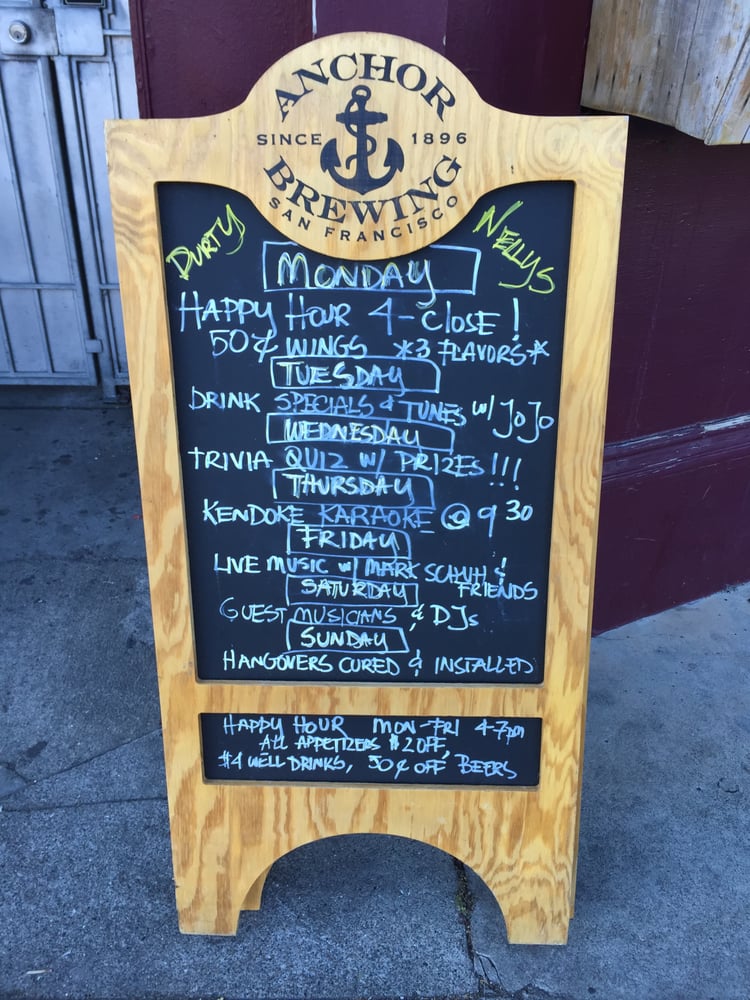 ANCHOR
SINCE 1896
BREWING
SAN FRANCISCO
DURTY NELLYS
MONDAY
HAPPY HOUR 4-CLOSE!
50¢ WINGS *3 FLAVORS*
TUESDAY
DRINK SPECIALS & TUNES W/ JOJO
WEDNESDAY
TRIVIA QUIZ W/ PRIZES!!!
THURSDAY
KENDOKE KARAOKE @ 9 30
FRIDAY
LIVE MUSIC W/ MARK &
FRIENDS
SATURDAY
GUEST MUSICIANS & DJs
SUNDAY
HANGOVERS CURED & INSTALLED
HAPPY HOUR MON-FRI 4-7pm
ALL APPETIZERS $2 OFF,
$4 WELL DRINKS, 50¢ OFF BEERS